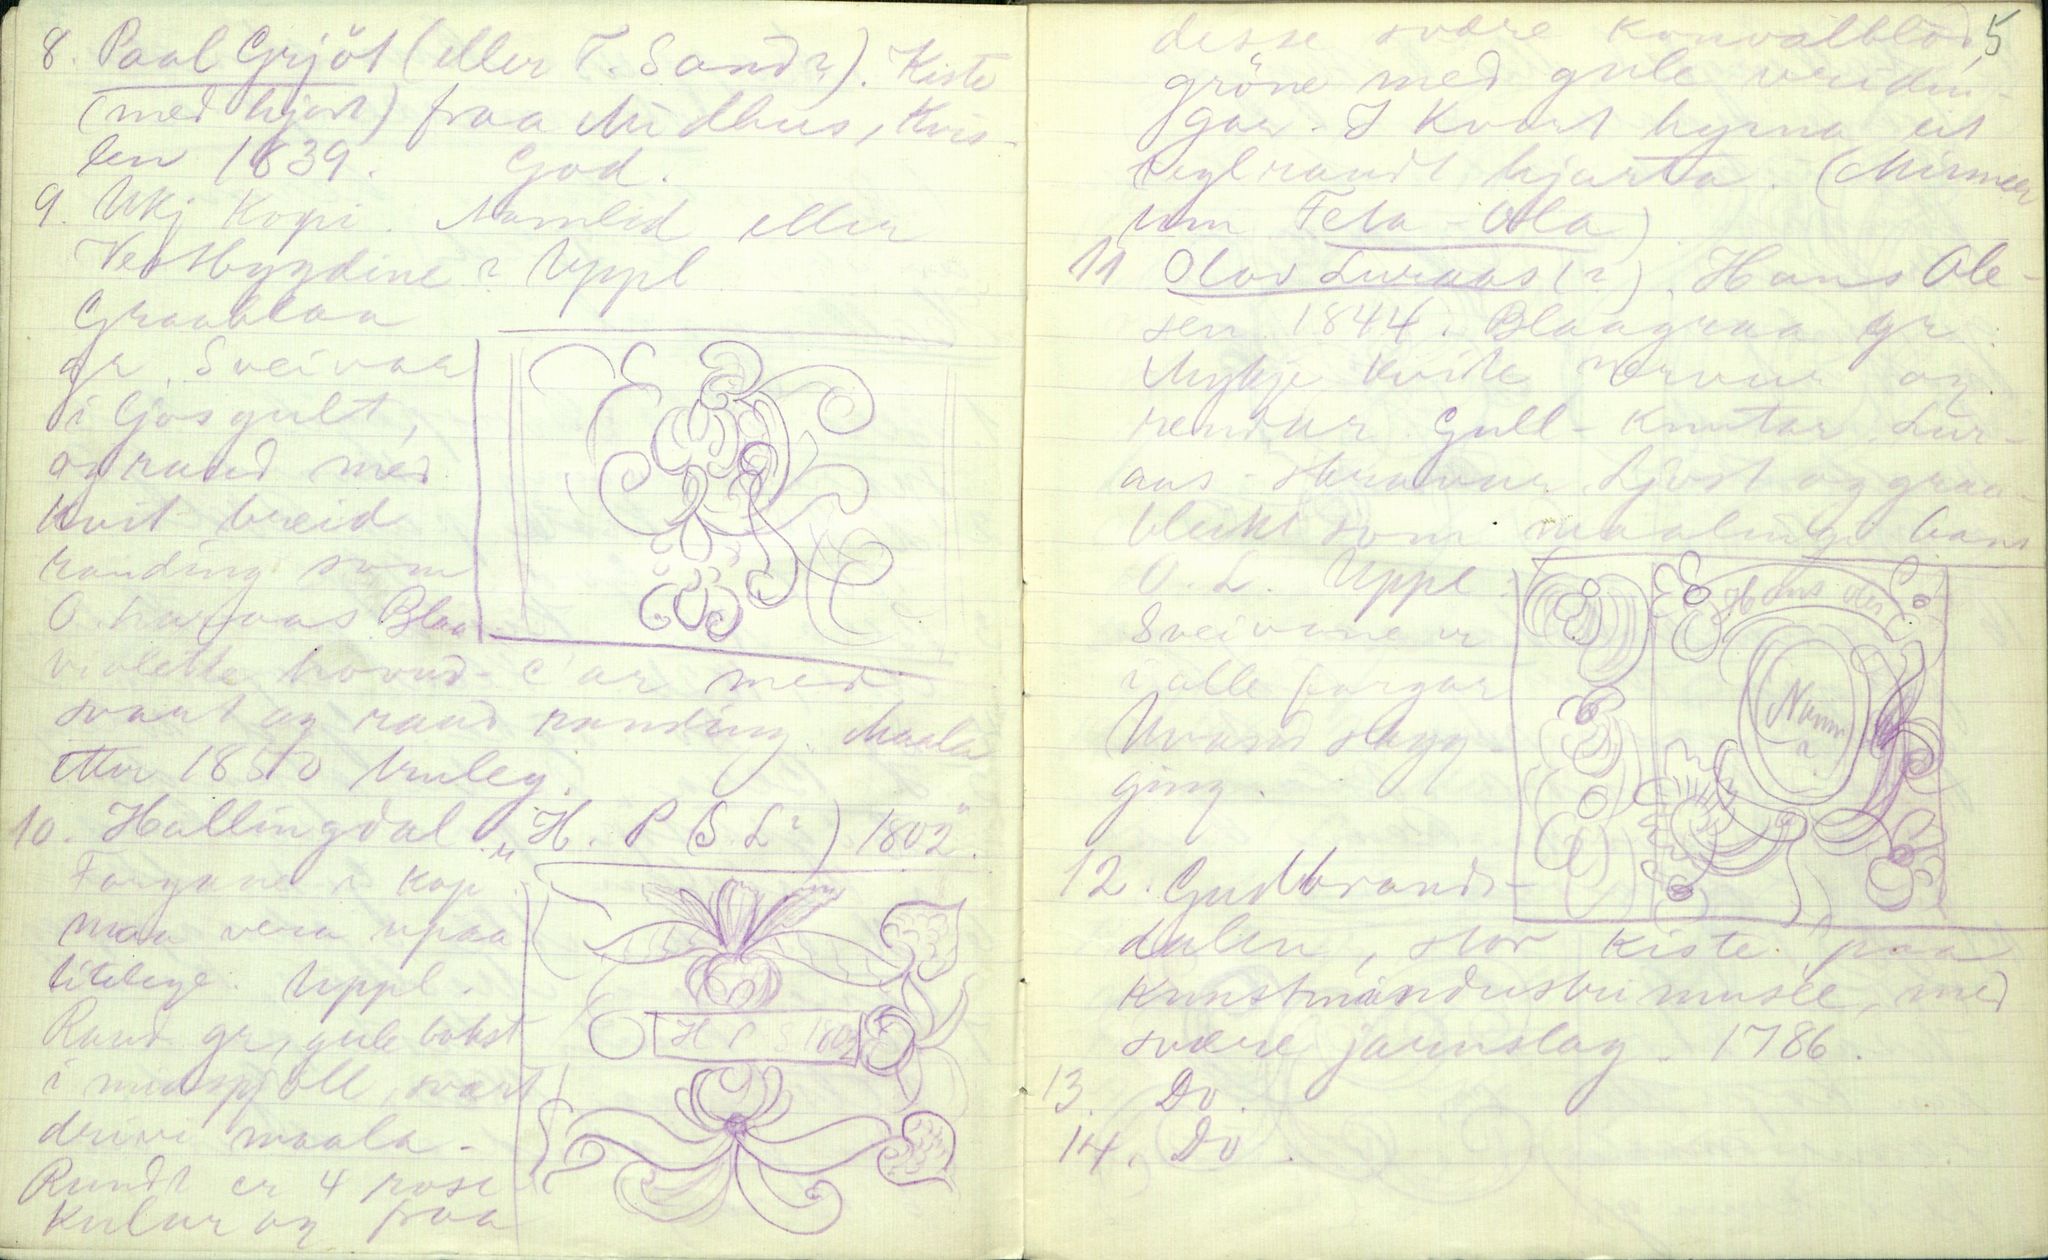 8. Paal Grjöt (eller T. Sand?). Kiste
(med hjort) fraa Midbus, Kvis-
len 1839. God.
9. Ukj Kopi. Numlid eller
Vestbygdine? Uppl
Graablaa
gr. Sveivar
i ljosgult,
og raud med
kvit breid
randing som
O. Luraas Blaa
violette hovud-C'ar med
svart og raud randing. Maala
etter 1850 truleg.
10. Hallingdal "H. P (S L?) 1802".
Fargane i kop.
maa vera upaa
litelege. Uppl.
Raud gr, gule bokst
i midspjell, svart
drivi maala.
Rundt er 4 rose
kular og fraa
H P S 1802
5
desse svære konvalblad,
gröne med gule vridin-
gar. I kvart hyrna eit
teglraudt hjarta. (Minner
um Teta-Ola)
11 Olav Luraas (?). Hans Ole-
sen 1844. Blaagraa gr.
Mykje kvite nervur og
rendur. Gull-knutar. Lur-
aas-skravur. Ljost og graa-
bleikt som maalingi hans
O. L. Uppl:
Sveivane er
i alle fargar
Uvand skygg-
ging.
Hans Oles
Namn
?
12. Gudbrands-
dalen, stor kiste paa
Kunstindustrimusée, med
svære jarnslag. 1786.
13. Do.
14. Do.